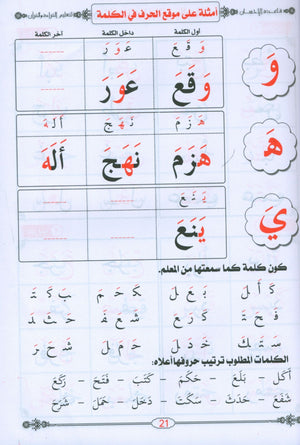 قاعدة الإحسان أمثلة على موقع الحرف في الكلمة
أول الكلمة داخل الكلمة آخر الكلمة
وَ وَ قَ عَ عَ وَ رَ
وَقَعَ عَوَرَ
هَ هَـ زَ مَ نَـ هَـ جَ أَ لَـ هَ
هَزَمَ نَهَجَ أَلَهَ
يَ يَـ نَـ عَ
يَنَعَ
كون كلمة كما سمعتها من المعلم.
كَ أَ لَ بَ عَ لَ كَ حَ مَ بَ كَ تَ
فَ حَ ةَ كَ رَ عَ شَ عَ فَ حَ ثَ دَ
سَ تَ كَ خَ دَ لَ حَ مَ لَ شَ حَ رَ
الكلمات المطلوب ترتيب حروفها أعلاه:
أَكَلَ - بَلَعَ - حَكَمَ - كَتَبَ - فَتَحَ - رَكَعَ
شَفَعَ - حَدَثَ - سَكَتَ - دَخَلَ - حَمَلَ - شَرَحَ
21